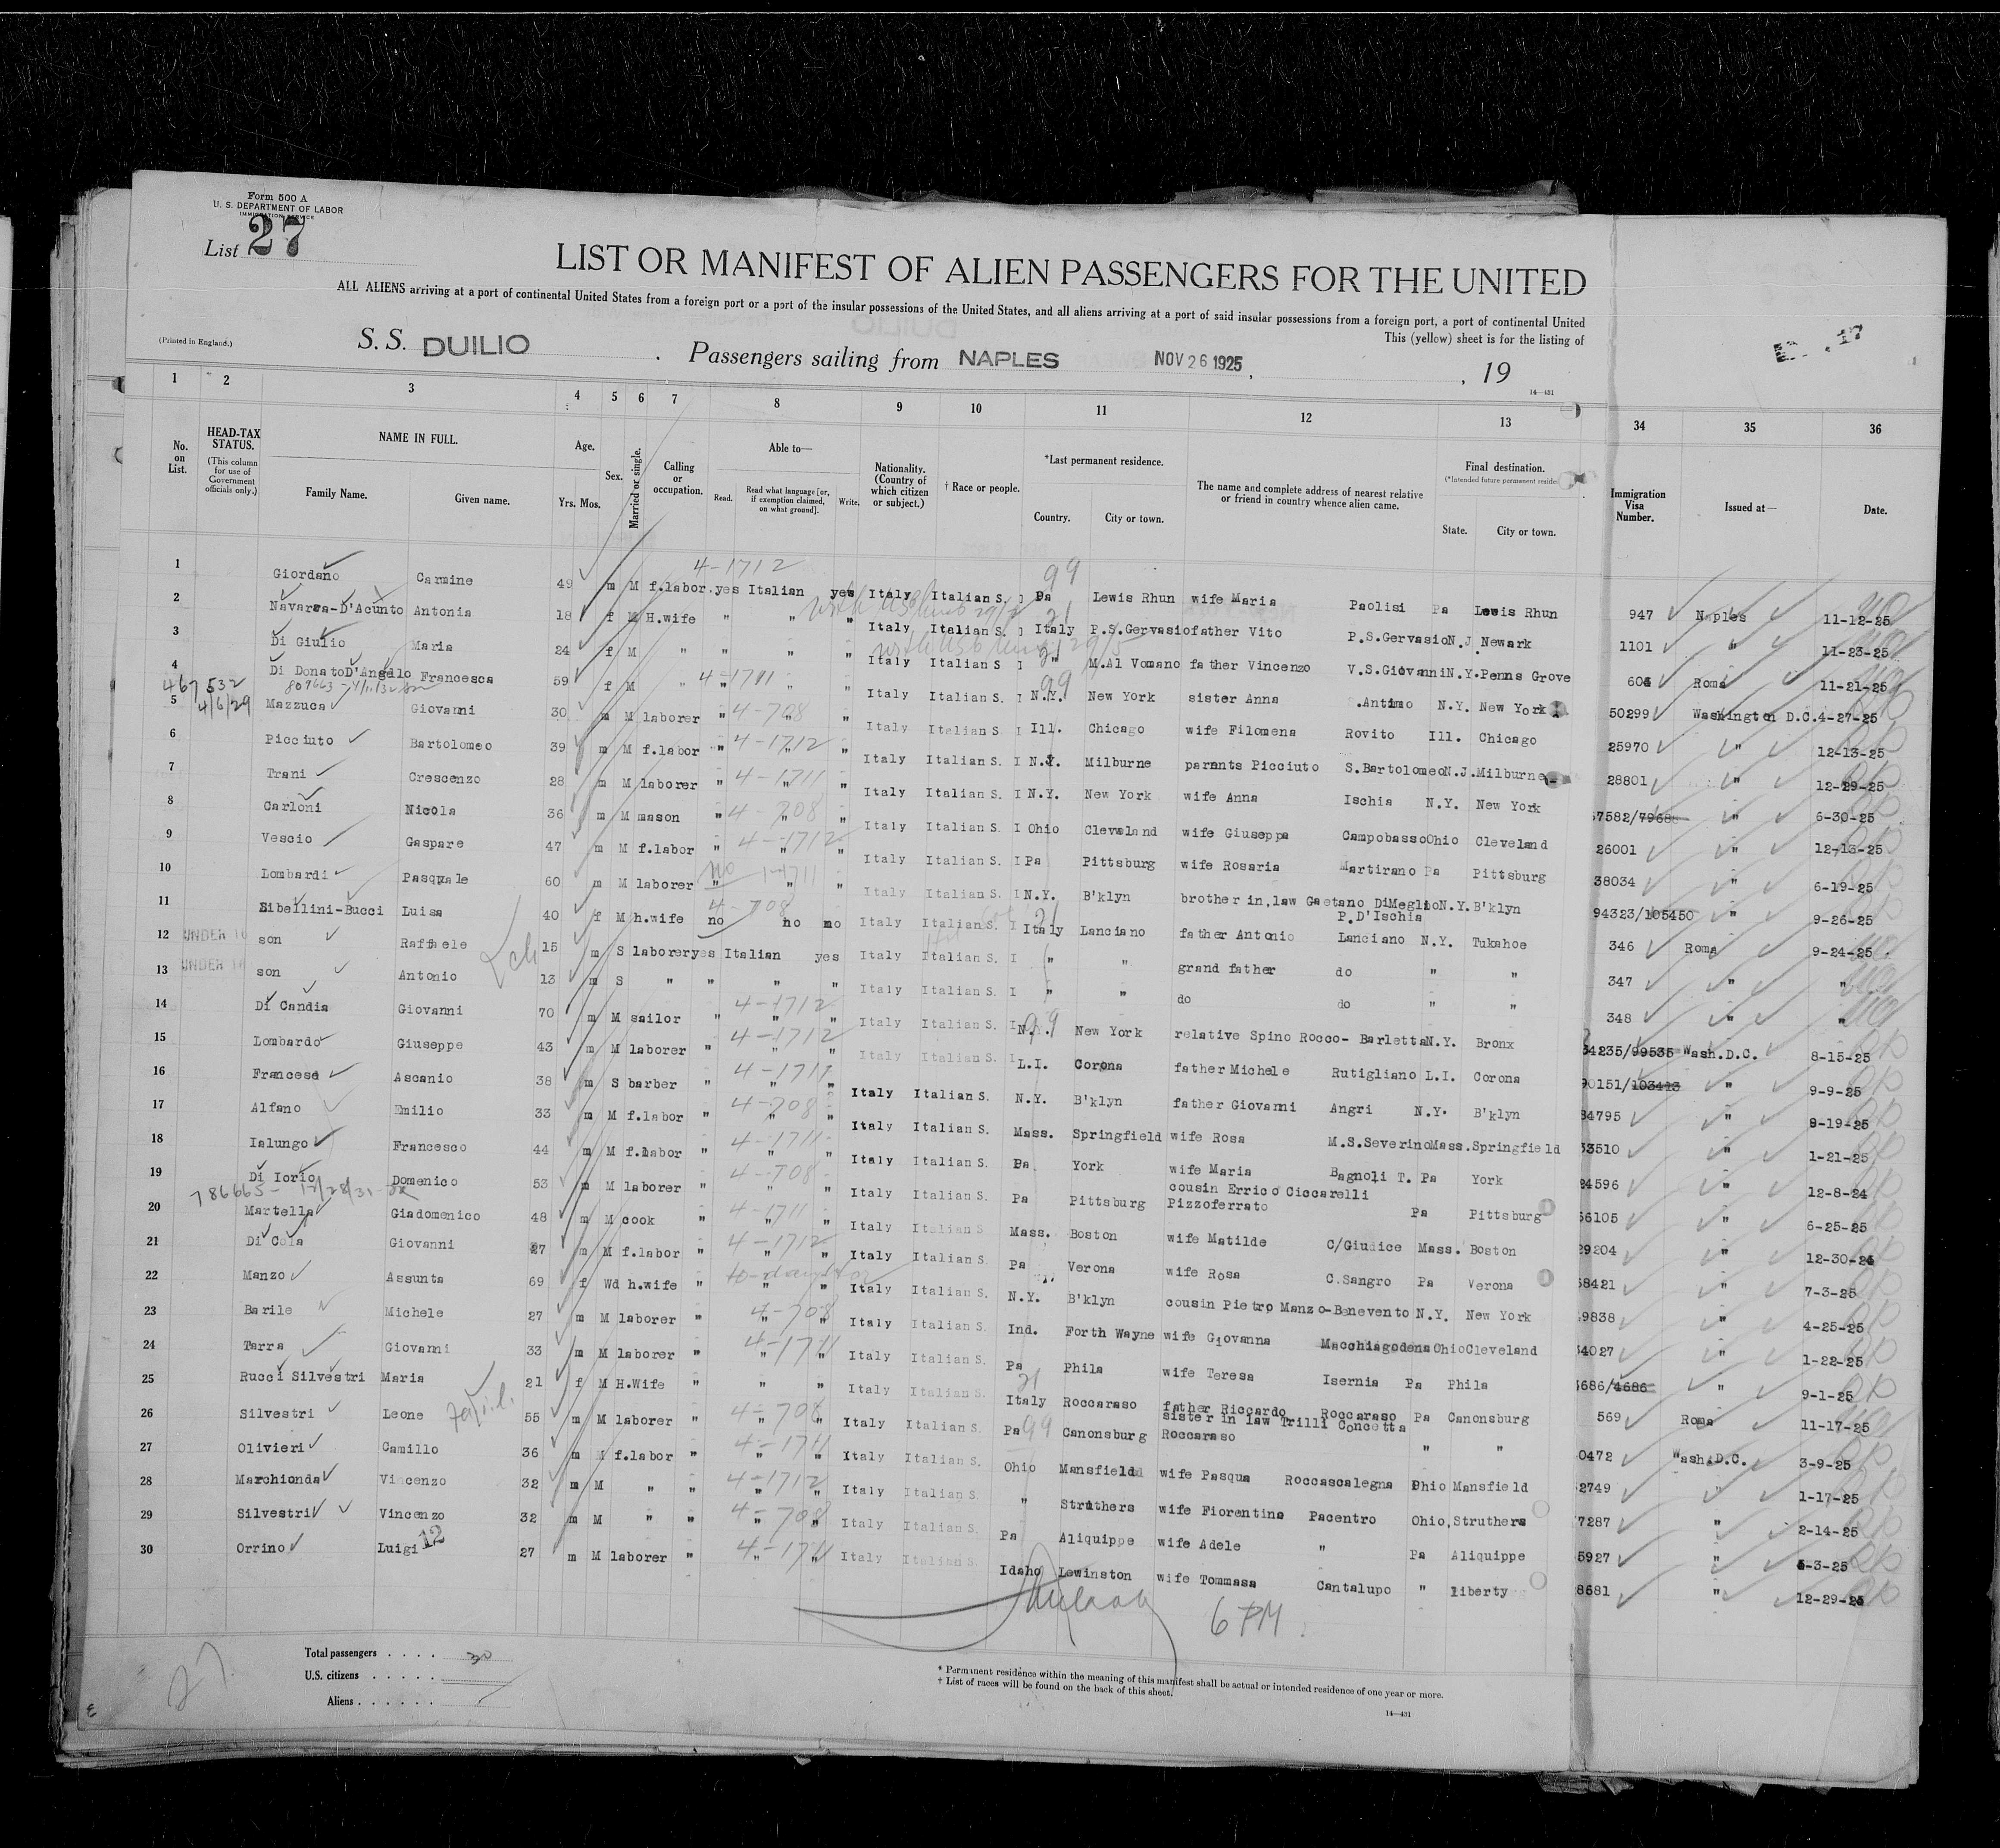 Form 500 A
U. S. DEPARTMENT OF LABOR
IMMIGRATION SERVICE
List 27
LIST OR MANIFEST OF ALIEN PASSENGERS FOR THE UNITED
ALL ALIENS arriving at a port of continental United States from a foreign port or a port of the insular possessions of the United States, and all aliens arriving at a port of said insular possessions from a foreign port, a port of continental United
This (yellow) sheet is for the listing of
(Printed in England.)
S. S. DUILIO . Passengers sailing from NAPLES NOV 26 1925 , , 19
14—431
1 2 3 4 5 6 7 8 9 10 11 12 13 34 35 36
No. on List. HEAD-TAX STATUS. (This column for use of Government officials only.) NAME IN FULL. Family Name. Given name. Age. Yrs. Mos. Sex. Married or single. Calling or occupation. Able to— Read. Read what language [or, if exemption claimed, on what ground]. Write. Nationality. (Country of which citizen or subject.) † Race or people. *Last permanent residence. Country. City or town. The name and complete address of nearest relative or friend in country whence alien came. Final destination. (*Intended future permanent reside State. City or town. Immigration Visa Number. Issued at— Date.
4-1712 99
1 Giordano Carmine 49 m M f.labor. yes Italian yes Italy Italian S. Pa Lewis Rhun wife Maria Paolisi Pa Lewis Rhun 947 Naples 11-12-25
2 Navarra-D'Acunto Antonia 18 f M H.wife " " " Italy Italian S. Italy P.S.Gervasio father Vito P.S.Gervasio N.J Newark 1101 " 11-23-25
3 Di Giulio Maria 24 f M " " " " Italy Italian S " M.Al Vomano father Vincenzo V.S.Giovanni N.Y. Penns Grove 604 Roma 11-21-25
4 Di Donato D'Angelo Francesca 59 f M " 4-1711 " " Italy Italian S. N.Y. New York sister Anna .Antimo N.Y. New York 50299 Washington D.C. 4-27-25
467532 4/6/29
5 Mazzuca Giovanni 30 m M laborer " 4-708 " Italy Italian S. Ill. Chicago wife Filomena Rovito Ill. Chicago 25970 " 12-13-25
6 Picciuto Bartolomeo 39 m M f.labor " 4-1712 " Italy Italian S. N.J. Milburne parants Picciuto S.Bartolomeo N.J. Milburne 28801 " 12-29-25
7 Trani Crescenzo 28 m M laborer " 4-1711 " Italy Italian S. N.Y. New York wife Anna Ischia N.Y. New York 57582/7968 " 6-30-25
8 Carloni Nicola 36 m M mason " 4-708 " Italy Italian S. Ohio Cleveland wife Giuseppa Campobasso Ohio Cleveland 26001 " 12-13-25
9 Vescio Gaspare 47 m M f.labor " 4-1712 " Italy Italian S. Pa Pittsburg wife Rosaria Martirano Pa Pittsburg 38034 " 6-19-25
10 Lombardi Pasquale 60 m M laborer " no " " Italy Italian S. N.Y. B'klyn brother in,law Gaetano DiMeglio P.D'Ischia N.Y. B'klyn 94323/105450 " 9-26-25
11 Sibellini-Bucci Luisa 40 f M h.wife no 4-708 no no Italy Italian Italy Lanciano father Antonio Lanciano N.Y. Tukahoe 346 Roma 9-24-25
12 UNDER 16 son Raffaele 15 m S laborer yes Italian yes Italy Italian S. " " grand father do " " 347 " "
13 UNDER 16 son Antonio 13 m S " " " " Italy Italian S. " " do do " " 348 " "
14 Di Candia Giovanni 70 m M sailor " 4-1712 " Italy Italian S. N.Y. New York relative Spino Rocco- Barletta N.Y. Bronx 34235/99535 Wash.D.C. 8-15-25
15 Lombardo Giuseppe 43 m M laborer " 4-1712 " Italy Italian S. L.I. Corona father Michele Rutigliano L.I. Corona 90151/103413 " 9-9-25
16 Francese Ascanio 38 m S barber " 4-1711 " Italy Italian S. N.Y. B'klyn father Giovanni Angri N.Y. B'klyn 84795 " 8-19-25
17 Alfano Emilio 33 m M f.labor " 4-708 " Italy Italian S. Mass. Springfield wife Rosa M.S.Severino Mass. Springfield 33510 " 1-21-25
18 Ialungo Francesco 44 m M f.labor " 4-1711 " Italy Italian S. Pa York wife Maria Bagnoli T. Pa York 24596 " 12-8-24
19 Di Iorio Domenico 53 m M laborer " 4-708 " Italy Italian S. Pa Pittsburg cousin Errico Ciccarelli Pizzoferrato Pa Pittsburg 56105 " 6-25-25
786665 - 12/28/31
20 Martella Giadomenico 48 m M cook " 4-1711 " Italy Italian S Mass. Boston wife Matilde C/Giudice Mass. Boston 29204 " 12-30-24
21 Di Cola Giovanni 27 m M f.labor " 4-1712 " Italy Italian S Pa Verona wife Rosa C.Sangro Pa Verona 58421 " 7-3-25
22 Manzo Assunta 69 f Wd h.wife " " Italy Italian S. N.Y. B'klyn cousin Pietro Manzo-Benevento N.Y. New York 9838 " 4-25-25
23 Barile Michele 27 m M laborer " 4-708 " Italy Italian S. Ind. Forth Wayne wife Giovanna Macchiagodena Ohio Cleveland 34027 " 1-22-25
24 Tarra Giovanni 33 m M laborer " 4-1711 " Italy Italian S. Pa Phila wife Teresa Isernia Pa Phila 4686 " 9-1-25
25 Rucci Silvestri Maria 21 f M H.Wife " " " Italy Italian S. Italy Roccaraso father Riccardo Roccaraso Pa Canonsburg 569 Roma 11-17-25
26 Silvestri Leone 55 m M laborer " 4-708 " Italy Italian S. Pa 99 Canonsburg sister in law Trilli Concetta Roccaraso " " 0472 Wash.D.C. 3-9-25
27 Olivieri Camillo 36 m M f.labor " 4-1711 " Italy Italian S. Ohio Mansfield wife Pasqua Roccascalegna Ohio Mansfield 2749 " 1-17-25
28 Marchionda Vincenzo 32 m M " " 4-1712 " Italy Italian S. " Struthers wife Fiorentina Pacentro Ohio, Struthers 7287 " 2-14-25
29 Silvestri Vincenzo 32 m M " " 4-708 " Italy Italian S. Pa Aliquippe wife Adele " Pa Aliquippe 5927 " 6-3-25
30 Orrino Luigi 12 27 m M laborer " 4-1711 " Italy Italian S. Idaho Lewinston wife Tommasa Cantalupo " liberty 8681 " 12-29-25
6 PM
27
Total passengers . . . . 30
U.S. citizens . . . . .
Aliens . . . . . .
* Permanent residence within the meaning of this manifest shall be actual or intended residence of one year or more.
† List of races will be found on the back of this sheet.
14—431